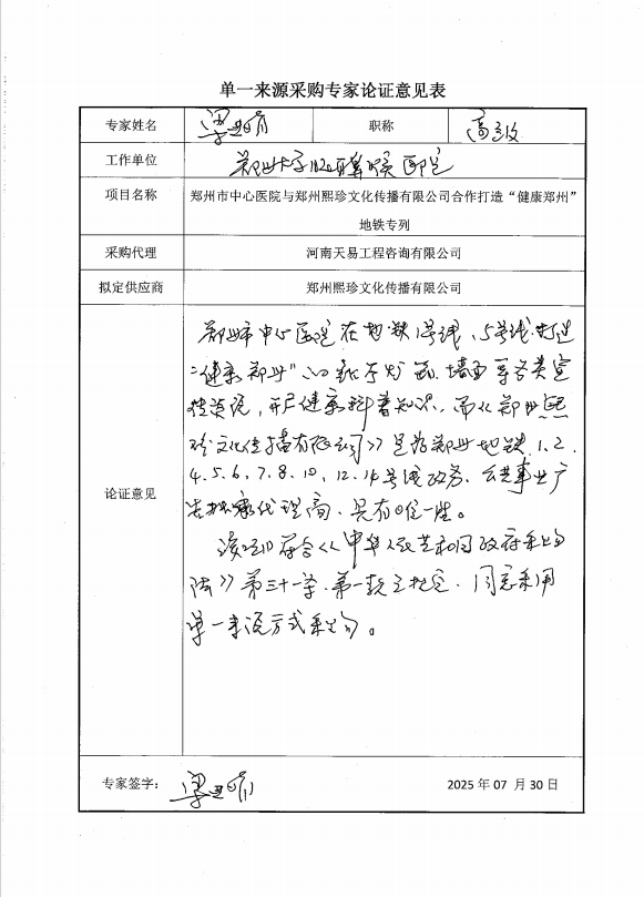 单一来源采购专家论证意见表
专家姓名 梁 职称 高级
工作单位 郑州大学 医院
项目名称 郑州市中心医院与郑州熙珍文化传播有限公司合作打造“健康郑州”
地铁专列
采购代理 河南天易工程咨询有限公司
拟定供应商 郑州熙珍文化传播有限公司
论证意见
郑州市中心医院在地铁1号线、5号线打造
“健康郑州” 墙面等各类宣
传资源，开展健康科普知识，而《郑州熙
珍文化传播有限公司》是为郑州地铁1.2.
4.5.6.7.8.10.12.14号线政务、公共事业广
告 代理商、具有唯一性。
该项目符合《中华人民共和国政府采购
法》第三十一条、第一款之规定、同意采用
单一来源方式采购。
专家签字： 梁 2025 年 07 月 30 日